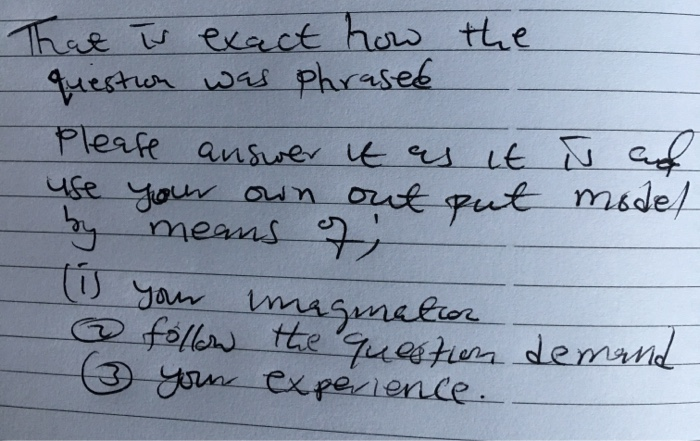 That is exact how the
question was phrased
Please answer it as it is and
use your own out put model
by means of;
(i) your imagination
(2) follow the question demand
(3) your experience.